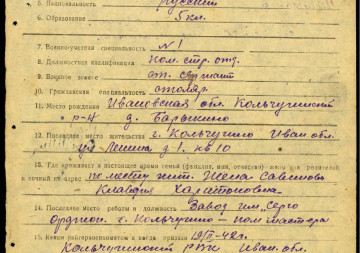 5. Национальность русский
6. Образование 5 кл.
7. Военно-учетная специальность № 1
8. Должностная квалификация ком. стр. отд.
9. Военное звание ст. сержант
10. Гражданская специальность столяр
11. Место рождения Ивановская обл. Кольчугинский
р-н д. Барыкино
12. Последнее место жительства г. Кольчугино Иван. обл.
ул. Ленина д. 1. кв 10
13. Где проживает в настоящее время семья (фамилия, имя, отчество) жены или родителей
и точный их адрес по месту жит. Жена Савинова
Клавдия Харитоновна
14. Последнее место работы и должность Завод им. "Серго
Орджон. г. Кольчугино - пом. мастера
15. Каким райгорвоенкоматом и когда призван 19/II-42г.
Кольчугинский РВК Иван. обл.